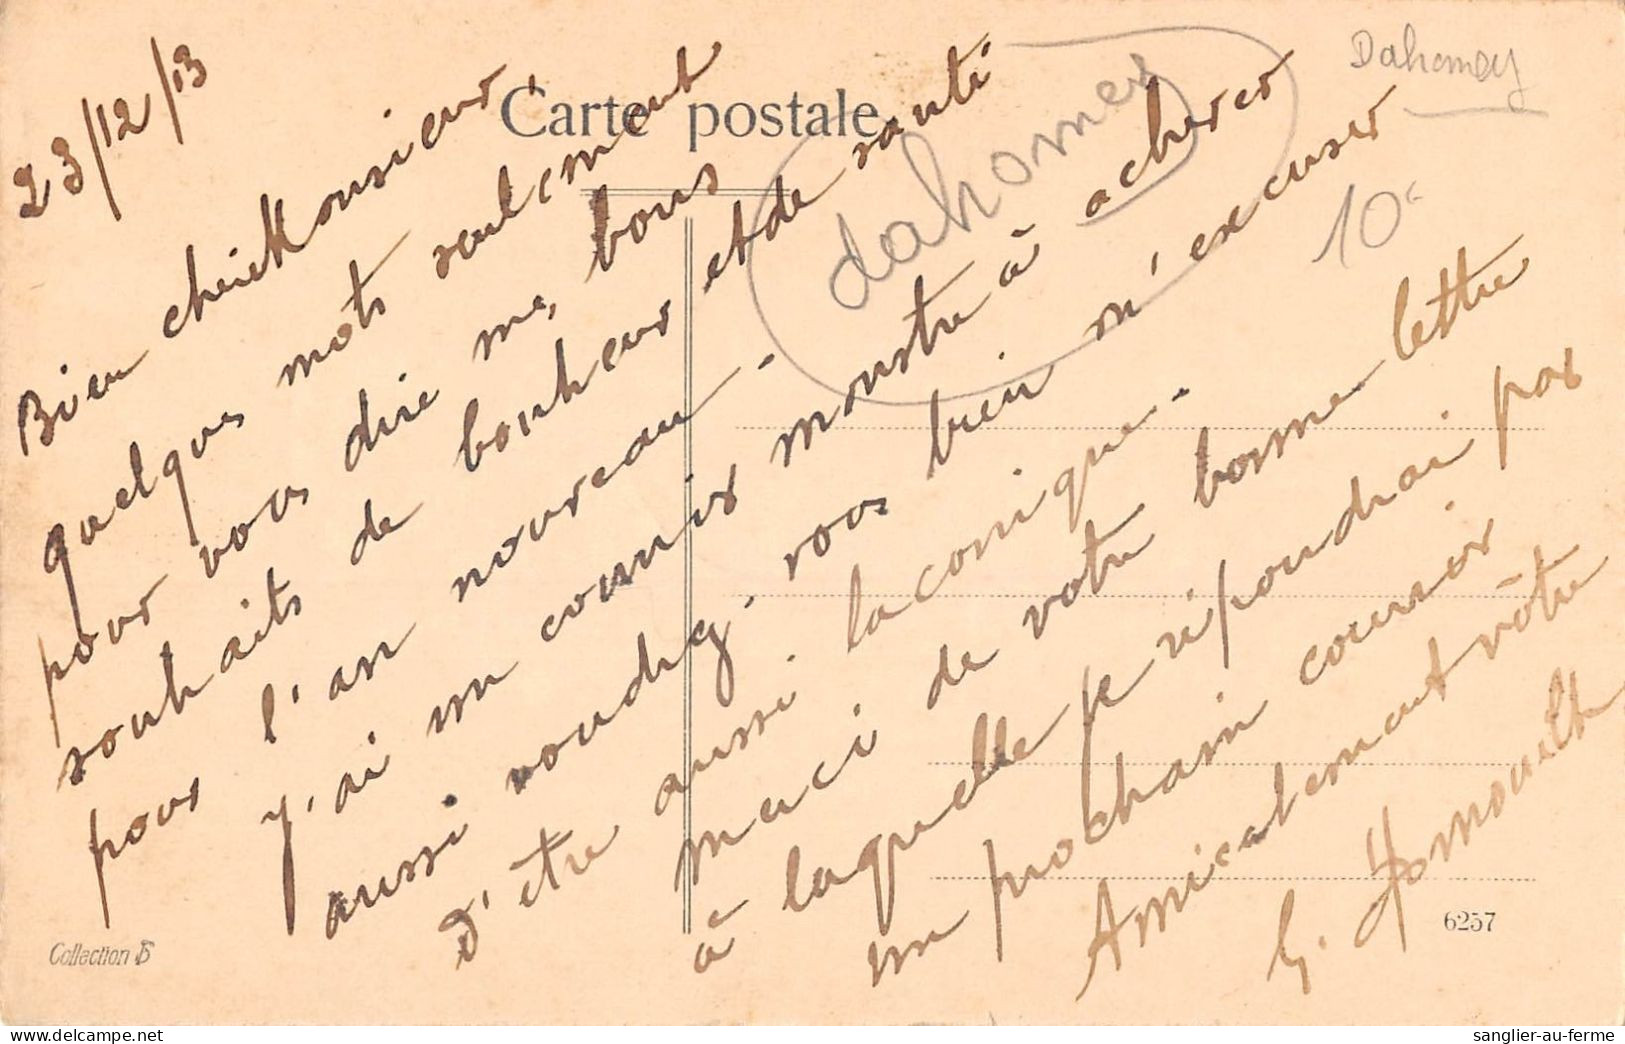 Carte postale
Dahomey
dahomey
10c
23/12/13
Bien cher Monsieur,
quelques mots seulement
pour vous dire mes bons
souhaits de bonheur et de santé
pour l'an nouveau -
j'ai un courrier monstre à achever
aussi voudrez-vous bien m'excuser
d'être aussi laconique.-
merci de votre bonne lettre
à laquelle je répondrai par
un prochain courrier
Amicalement vôtre
G.
Collection
6257
sanglier-au-ferme